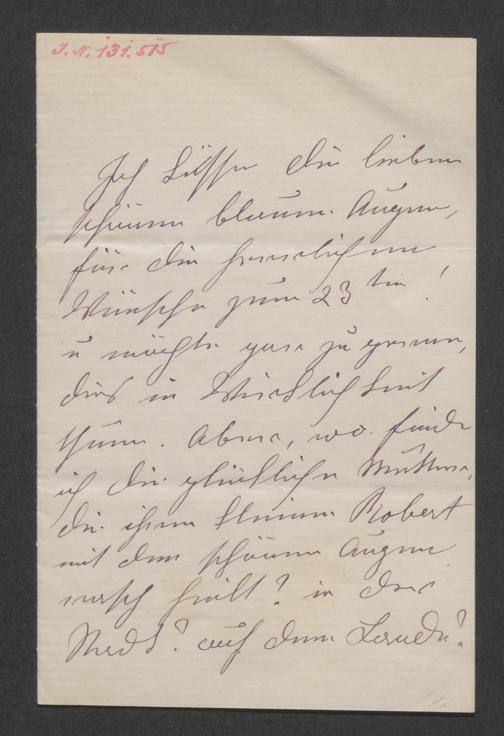 I.N. 131.515
Ich küsse die lieben
schönen blauen Augen,
für die herrlichen
Wünsche zum 23ten!
u möchte gar zu gerne,
dies in Wirklichkeit
thuen. Aber, wo finde
ich die glückliche Mutter,
die ihren kleinen Robert
mit den schönen Augen
rasch hält? in der
Stadt? auf dem Lande?